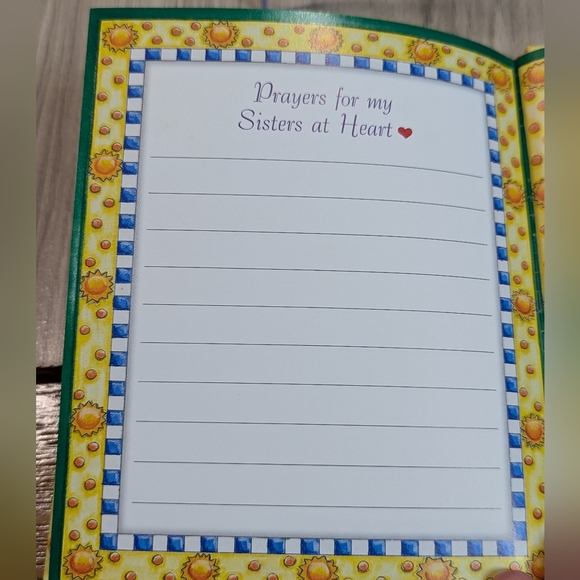 Prayers for my
Sisters at Heart